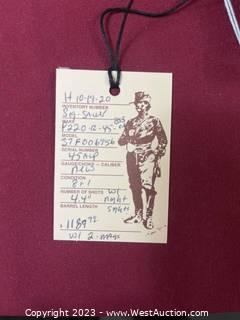 H 10-19-20
INVENTORY NUMBER
Sig-Sauer
MAKE
P220-R-45-
MODEL
37F006956
SERIAL NUMBER
45ACP
GAUGE/CHOKE — CALIBER
New
CONDITION
8+1
NUMBER OF SHOTS w/
4.4" night
BARREL LENGTH sight
1189
w/ 2-mags
Copyright © 2023 - www.WestAuction.com